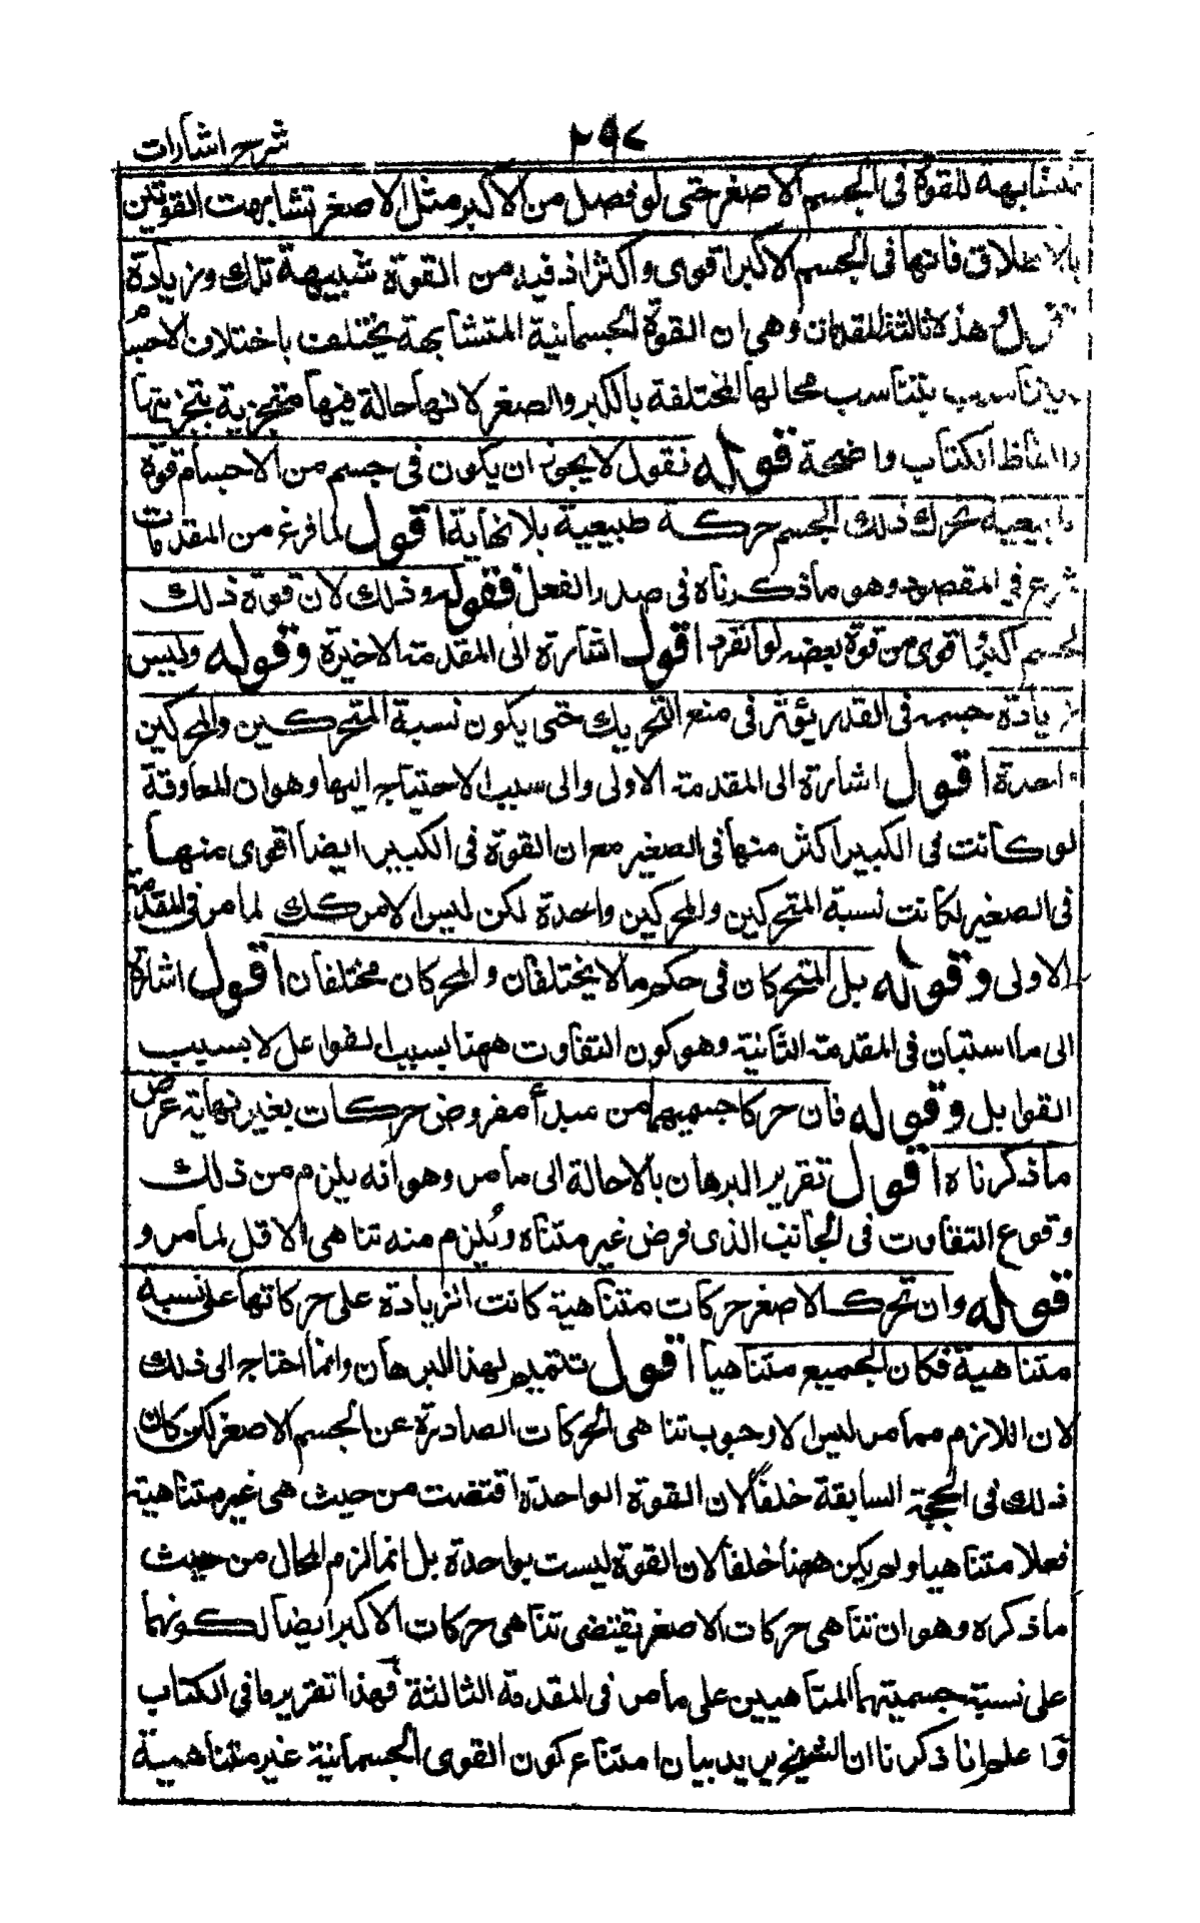 شرح اشارات
٢٩٧
متشابهة للقوة فى الجسم الاصغر حتى لو فصل من الاكبر مثل الاصغر تشابهت القوتين
بالاطلاق فانها فى الجسم الاكبر اقوى واكثر اذ فيه من القوة شبيهة تلك وزيادة
اقول هذه ثالثة المقدمات وهى ان القوة الجسمانية المتشابهة يختلف باختلاف الاجسام
ويتناسب بتناسب محالها المختلفة بالكبر والصغر لانها حالة فيها متجزية بتجزيتها
والفاظ الكتاب واضحة قوله نقول لا يجوز ان يكون فى جسم من الاجسام قوة
طبيعية تحرك ذلك الجسم حركة طبيعية بلا نهاية اقول لما فرغ من المقدمات
شرع فى المقصود وهو ما ذكرناه فى صدر الفعل فقوله وذلك لان قوة ذلك
الجسم اكثر اقوى من قوة بعضه لو انفرد اقول اشارة الى المقدمة الاخيرة وقوله وليس
زيادة جسمه فى القدر يؤثر فى منع التحريك حتى يكون نسبة المتحركين والمحركين
واحدة اقول اشارة الى المقدمة الاولى والى سبب الاحتياج اليها وهو ان المعاوقة
لو كانت فى الكبير اكثر منها فى الصغير مع ان القوة فى الكبير ايضا اقوى منها
فى الصغير لكانت نسبة المتحركين والمحركين واحدة لكن ليس الامر كك لما مر فى المقدمة
الاولى وقوله بل المتحركان فى حكم ما لا يختلفان والمحركان مختلفان اقول اشارة
الى ما استبان فى المقدمة الثانية وهو كون التفاوت ههنا بسبب الفواعل لا بسبب
القوابل وقوله فان حركا جسميهما من مبدأ مفروض حركات بغير نهاية عرض
ما ذكرناه اقول تقرير البرهان بالاحالة الى ما مر وهو انه يلزم من ذلك
وقوع التفاوت فى الجانب الذى فرض غير متناه ويلزم منه تناهى الاقل لما مر و
قوله وان تحرك الاصغر حركات متناهية كانت الزيادة على حركاتها على نسبة
متناهية فكان الجميع متناهيا اقول تتميم لهذا البرهان وانما احتاج الى ذلك
لان اللازم مما مر ليس الا وجوب تناهى الحركات الصادرة عن الجسم الاصغر لكن كان
ذلك فى الحجة السابقة خلفا لان القوة الواحدة اقتضت من حيث هى غير متناهية
فعلا متناهيا ولم يكن ههنا خلفا لان القوة ليست بواحدة بل انما لزم المحال من حيث
ما ذكره وهو ان تناهى حركات الاصغر يقتضى تناهى حركات الاكبر ايضا لكونهما
على نسبة جسميتهما المتناهيين على ما مر فى المقدمة الثالثة فهذا تقرير ما فى الكتاب
واعلم انا ذكرنا ان الشيخ يريد بيان امتناع كون القوى الجسمانية غير متناهية